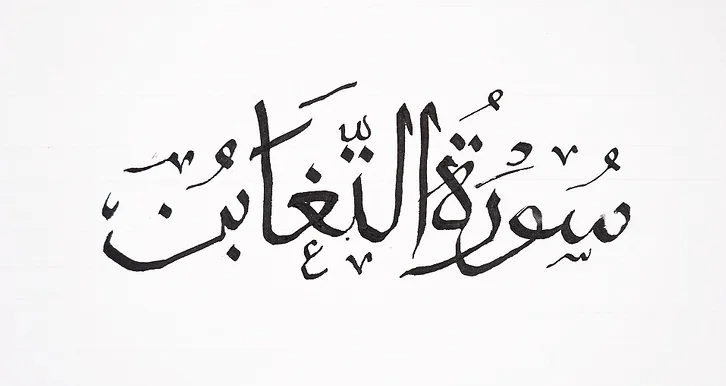 سُورَةُ التَّغَابُن